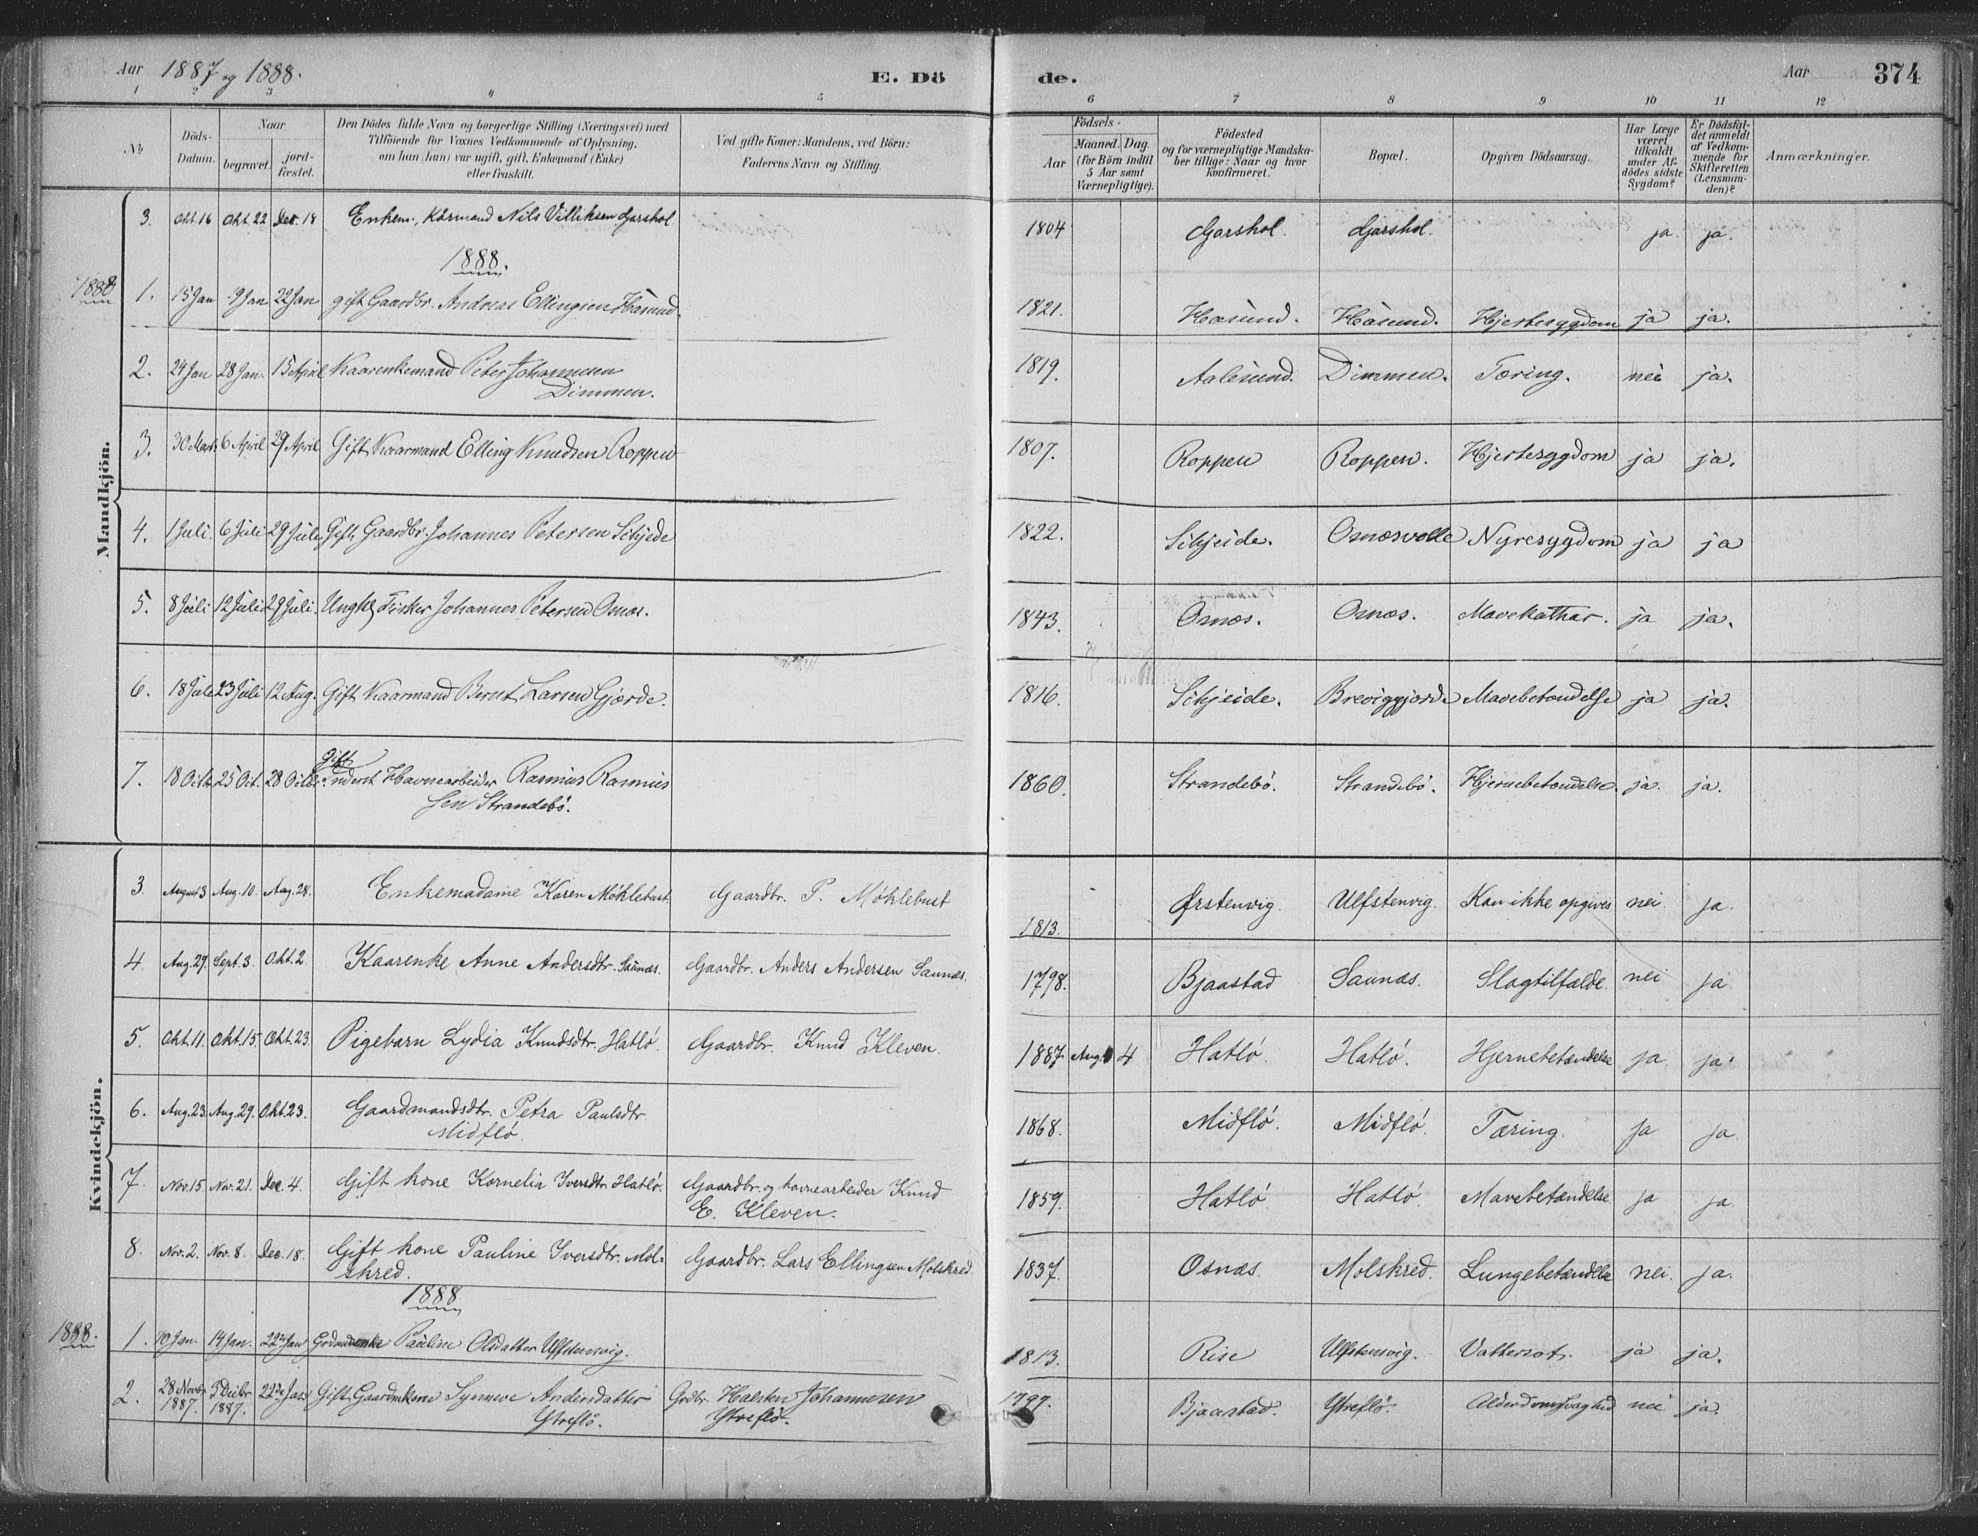 Aar 1887 og 1888. E. Dö de. Aar 374
1 2 3 4 5 6 7 8 9 10 11 12
No
Döds-Datum.
Naar
begravet.
jord-fæstet.
Den Dödes fulde Navn og borgerlige Stilling (Næringsvei) med
Tilföiende for Voxnes Vedkommende af Oplysning,
om han (hun) var ugift, gift, Enkemand (Enke)
eller fraskilt.
Ved gifte Koner: Mandens, ved Börn:
Faderens Navn og Stilling.
Födsels-
Aar
Maaned. Dag.
(for Börn indtil
5 Aar samt
Værnepligtige).
Födested
og for værnepligtige Mandska-
ber tillige: Naar og hvor
konfirmeret.
Bopæl.
Opgiven Dödsaarsag.
Har Læge
været
tilkaldt
under Af-
dödes sidste
Sygdom?
Er Dödsfal-
det anmeldt
af Vedkom-
mende for
Skifteretten
(Lensman-
den)?
Anmærkninger.
Mandkjön.
3. Okt. 16 Okt. 22 Dec. 18 Enkem., Kårmand Nils Villiksen Garshol 1804 Garshol. Garshol. ja ja.
1888.
1888 1. 15 Jan 9 Jan 22 Jan gift Gaardbr. Andreas Ellingsen Hasund. 1821. Hasund. Hasund. Hjertesygdom ja ja.
2. 24 Jan 28 Jan. 15 April Kaarenkemand Peter Johannesen
Dimmen. 1819. Aalesund. Dimmen. Tæring. nei ja.
3. 30 Marts 6 April 29 April Gift Kaarmand Elling Knudsen Roppen 1807. Roppen Roppen. Hjertesygdom ja ja.
4. 1 Juli. 6 Juli 29 Juli Gift Gaardbr. Johannes Petersen Schjede 1822. Schjeide. Osnæsvolle Nyresygdom ja ja
5. 8 Juli 12 Juli 29 Juli. Ungk. Fisker Johannes Petersen Osnæs. 1843. Osnæs. Osnæs. Mavekathar. ja ja.
6. 18 Juli 23 Juli 12 Aug. Gift Kaarmand Bernt Larsen Gjærde. 1816. Schjeide. Breviggjærde Mavebetændelse ja ja.
Gift
7. 18 Octbr 25 Oct. 28 Octbr. Inderst Havnearbeider Rasmus Rasmus
sen Strandebö. 1860. Strandebö. Strandebö. Hjernebetændelse. ja. ja.
Kvindekjön.
3 August 3 Aug. 10. Aug. 28. Enkemadame Karen Möklebust Gaardbr. P. Möklebust 1813. Ørstenvig. Ulfstenvig. Kan ikke opgives nei. ja.
4. Aug. 29. Sept. 3. Okt. 2 Kaarenke Anne Andersdtr. Saunæs. Gaardbr. Anders Andersen Saunæs. 1798. Bjaastad Saunæs. Slagtilfælde. nei ja
5. Okt. 11. Okt. 15. Okt. 23. Pigebarn Lydia Knudsdtr. Hatlö. Gaardbr. Knud Kleven. 1887 Aug. 4 Hatlö. Hatlö. Hjernebetændelse ja ja.
6. Aug. 23. Aug. 29. Okt. 23. Gaardmandsdtr. Petra Paulsdtr.
Midflö. 1868. Midflö. Midflö. Tæring. ja ja.
7. Nov. 15 Nov. 21. Dec. 4. Gift kone Kornelia Iversdtr. Hatlö. Gaardbr. og havnearbeider Knud
E. Kleven. 1859. Hatlö Hatlö Mavebetændelse ja ja
8. Nov. 2. Nov. 8. Dec. 18. Gift kone Pauline Iversdtr. Mol-
skred. Gaardbr. Lars Ellingsen Molskred. 1837. Osnæs. Molskred. Lungebetændelse nei. ja.
1888
1888. 1. 10 Jan. 14 Jan. 22 Jan Pauline Olsdatter Ulfstenvig. 1813. Rise Ulfstenvig. Vattersot. ja ja.
2. 28 Novbr
1887. 5 Decbr
1887. 22de Jan Gift Gaardmkone Synneve Andersdatter
Ytreflö. Grdbr. Halsten Johannesen
Ytreflö. 1797. Bjaastad. Ytreflö. Alderdomssvaghed nei ja.